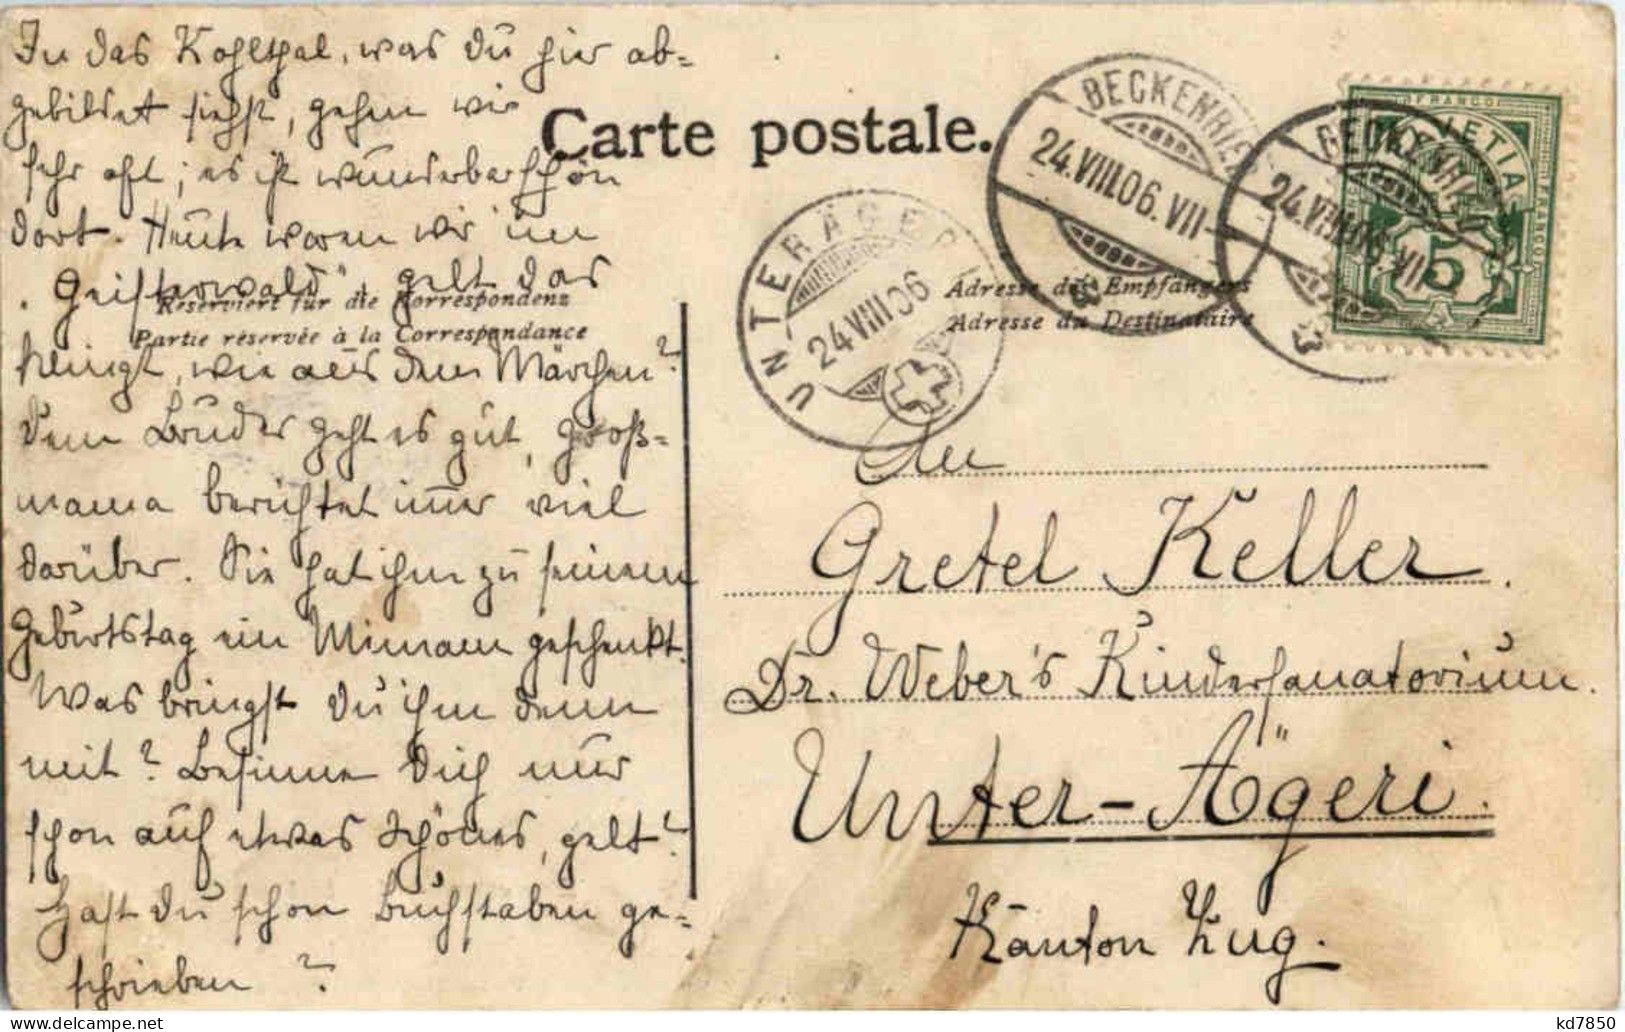 In das Kohlthal, was Du hier ab-
gebildet siehst, gehen wir
sehr oft; es ist wunderbarschön
dort. Heute waren wir im
„Geisterwald", gelt das
klingt, wie aus dem Märchen?
Dem Bruder geht es gut, Groß-
mama berichtet immer viel
darüber. Sie hat ihm zu seinem
Geburtstag ein geschenkt.
Was bringst Du ihm denn
mit? Besinne Dich nur
schon auf etwas Schönes, gelt?
Hast Du schon Buchstaben ge-
schrieben?
Carte postale.
Reserviert für die Korrespondenz
Partie réservée à la Correspondance
Adresse des Empfängers
Adresse du Destinataire
UNTERÄGERI
24.VIII.06
BECKENRIED
24.VIII.06.VII
BECKENRIED
24.VIII.06.VII
FRANCO
HELVETIA
FRANCO
5
An
Gretel Keller.
Dr. Weber's Kindersanatorium.
Unter-Ägeri.
Kanton Zug.
kd7850